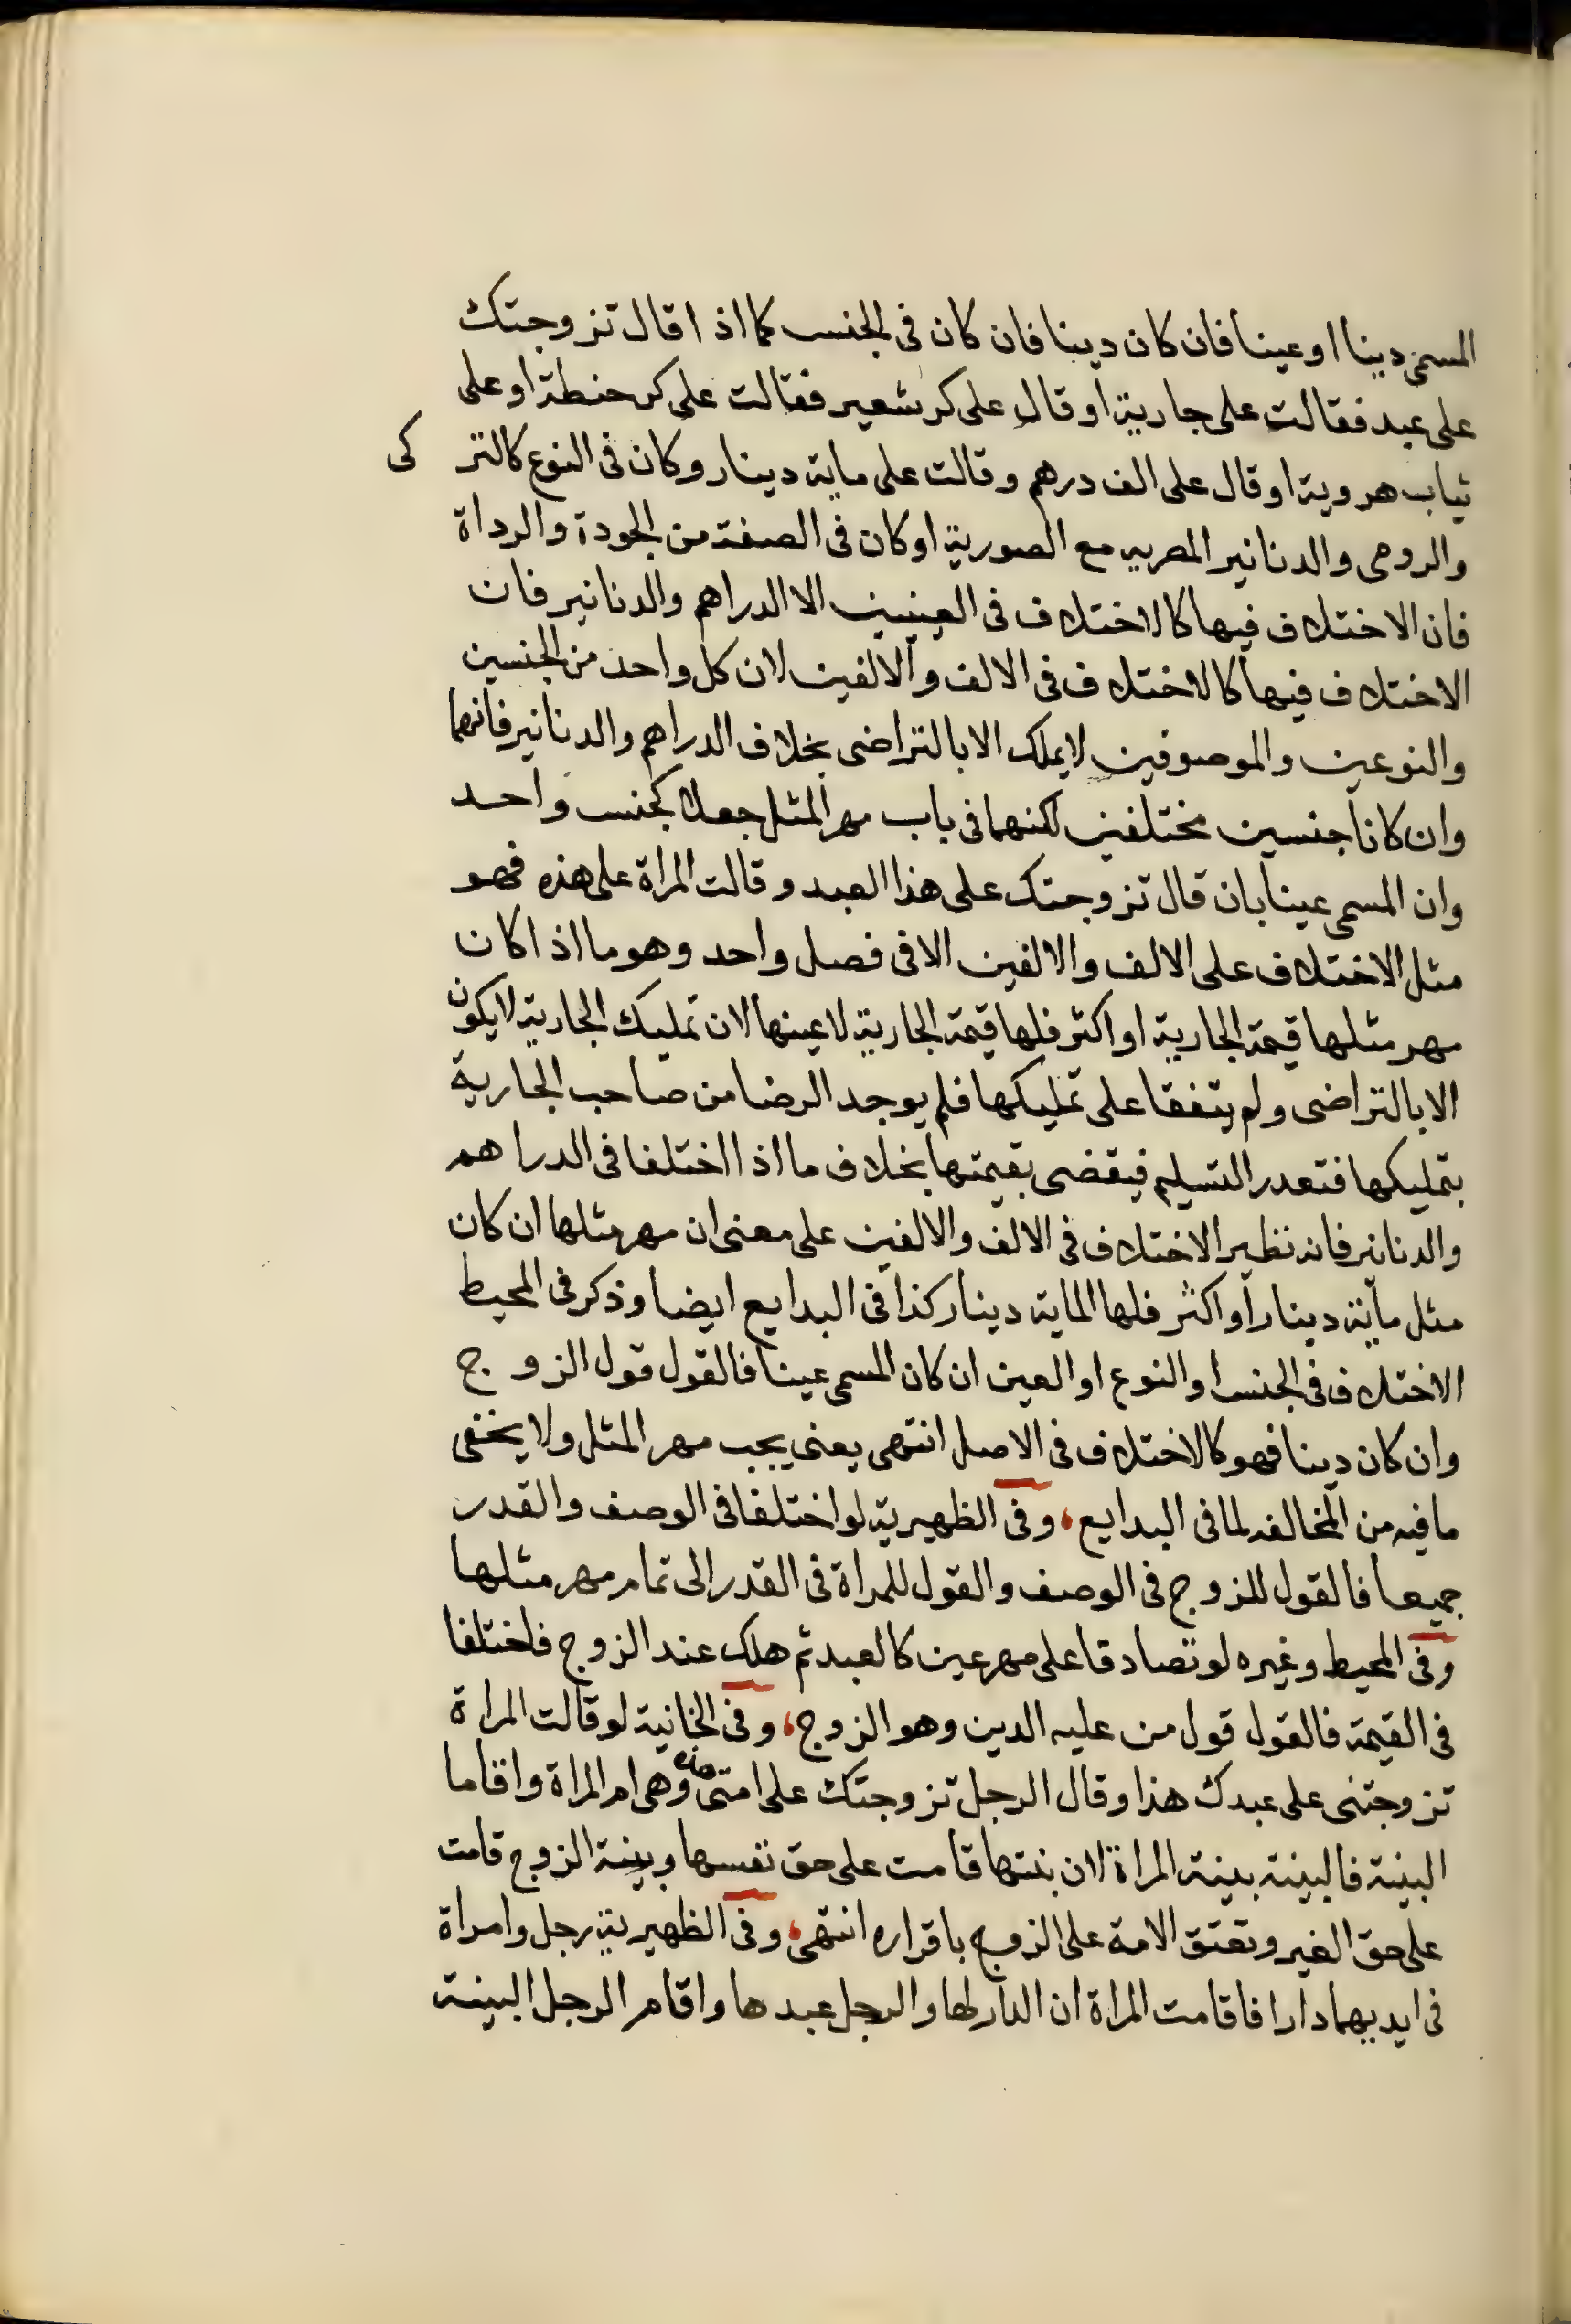 المسمى دينا او عينا فان كان دينا فان كان فى الجنس كما اذا قال تزوجتك
على عبد فقالت على جارية او قال على كر شعير فقالت على كر حنطة او على
ثياب هروية او قال على الف درهم وقالت على ماية دينار وكان فى النوع كالتركى
والرومى والدنانير المصريه مع الصورية او كان فى الصفة من الجودة والرداة
فان الاختلاف فيها كالاختلاف فى العينين الا الدراهم والدنانير فان
الاختلاف فيها كالاختلاف فى الالف والالفين لان كل واحد من الجنسين
والنوعين والموصوفين لا يملك الا بالتراضى بخلاف الدراهم والدنانير فانهما
وان كانا جنسين مختلفين لكنهما فى باب مهر المثل جعلا كجنس واحد
وان المسمى عينا بان قال تزوجتك على هذا العبد وقالت المراة على هذه فهو
مثل الاختلاف على الالف والالفين الا فى فصل واحد وهو ما اذا كان
مهر مثلها قيمة الجارية او اكثر فلها قيمة الجارية لا عينها لان تمليك الجارية لا يكون
الا بالتراضى ولم يتفقا على تمليكها فلم يوجد الرضا من صاحب الجارية
بتمليكها فتعدر التسليم فيقضى بقيمتها بخلاف ما اذا اختلفا فى الدراهم
والدنانير فانه نظير الاختلاف فى الالف والالفين على معنى ان مهر مثلها ان كان
مثل مأية دينار أو اكثر فلها الماية دينار كذا فى البدايع ايضا وذكر فى المحيط
الاختلاف فى الجنس او النوع او العين ان كان المسمى عينا فالقول قول الزوج
وان كان دينا فهو كالاختلاف فى الاصل انتهى يعنى يجب مهر المثل ولا يخفى
ما فيه من المخالفه لما فى البدايع، وفى الظهيرية لو اختلفا فى الوصف والقدر
جميعا فالقول للزوج فى الوصف والقول للمراة فى القدر الى تمام مهر مثلها
وفى المحيط وغيره لو تصادقا على مهر عين كالعبد ثم هلك عند الزوج فاختلفا
فى القيمة فالقول قول من عليه الدين وهو الزوج، وفى الخانية لو قالت المراة
تزوجتنى على عبدك هذا وقال الرجل تزوجتك على امتى هذه وهى ام المراة واقاما
البينة فالبينة بينة المراة لان بنتها قامت على حق نفسها وبينة الزوج قامت
على حق الغير وتعتق الامة على الزوج باقراره انتهى، وفى الظهيرية رجل وامراة
فى ايديهما دارا فاقامت المراة ان الدار لها والرجل عبدها واقام الرجل البينة